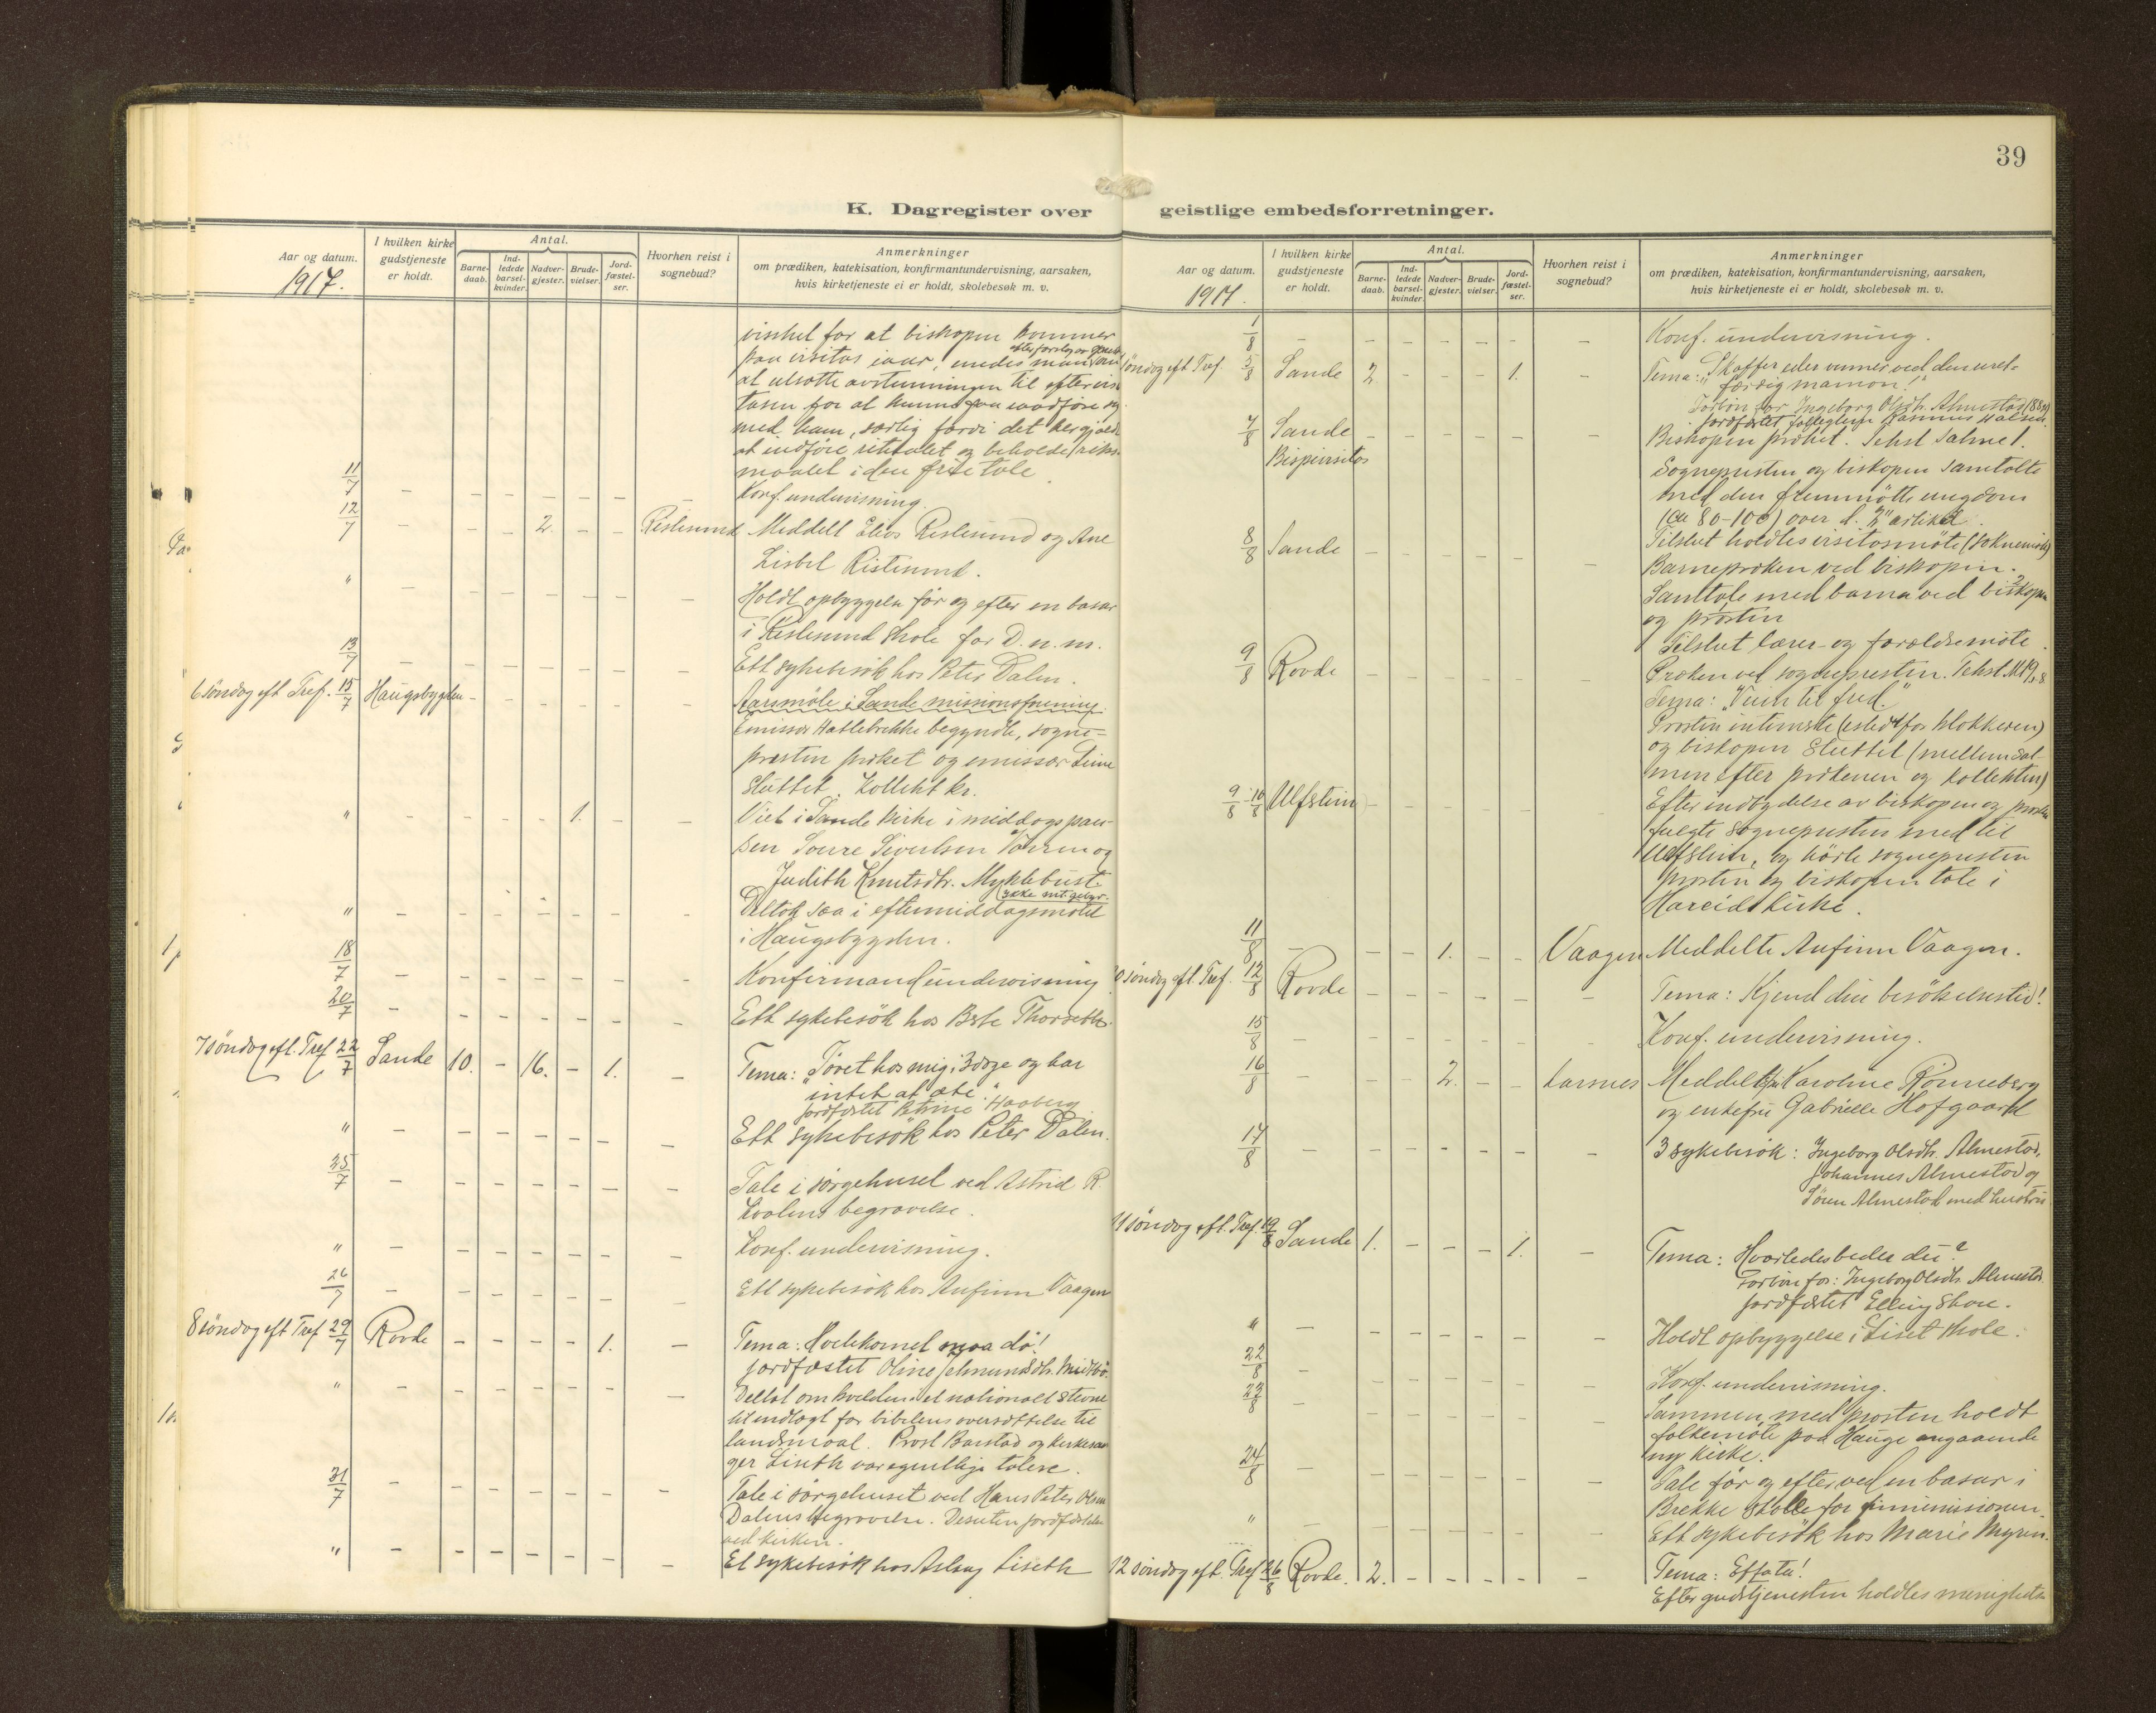 39
K. Dagregister over geistlige embedsforretninger.
Aar og datum.
1917.
I hvilken kirke gudstjeneste er holdt.
Antal.
Barne-daab.
Ind-ledede barsel-kvinder.
Nadver-gjester.
Brude-vielser.
Jord-fæstel-ser.
Hvorhen reist i sognebud?
Anmerkninger
om prædiken, katekisation, konfirmantundervisning, aarsaken,
hvis kirketjeneste ei er holdt, skolebesøk m. v.
visshet for at biskopen kommer
paa visitas iaar,
at utsætte avstemningen til
med ham, særlig fordi det her gjælder
at indføre ritualet og beholde
maalet i den frie tale.
11/7 – – – – – – – Konf. undervisning
12/7 – – – 2. – – Ristesund Meddelt Elias Ristesund og Ane
Lisbet Ristesund.
" – – – – – – – Holdt opbyggelse før og efter en basar
i Ristesund skole for D. n. m.
13/7 – – – – – – – Ett sykebesøk hos Peter Dalen.
6 søndag eft Tref. 15/7 Haugsbygden – – – – – – Aarsmøte i Sande missionsforening.
Emissær Hatlebrekke begyndte, sogne-
presten præket og emissær
Sluttet. Kollekt kr.
" – – – – 1. – – Viet i Sande kirke i middagspau-
sen Sverre Sivertsen og
Judith Knutsdtr. Myklebust.
" – – – – – – – Deltok saa i eftermiddagsmøtet
i Haugsbygden.
18/7 – – – – – – – Konfirmandundervisning
20/7 – – – – – – – Ett sykebesøk hos Thorseth.
7 søndag eft. Tref 22/7 Sande 10. – 16. – 1. – Tema: "Tøvet hos mig i 3 dage og har
intet at æte".
Jordfæstet Petrine Haaberg
" – – – – – – – Ett sykebesøk hos Peter Dalen.
25/7 – – – – – – – Tale i sørgehuset ved Astrid R.
begravelse.
" – – – – – – – Konf. undervisning.
26/7 – – – – – – – Ett sykebesøk hos Anfinn Vaagen
8 søndag eft Tref 29/7 Rovde – – – – 1. – Tema: Hvetekornet maa dø!
Jordfæstet Oline
" – – – – – – – Deltat om kvelden i et nationalt stevne
tilendlagt for bibelens oversættelse til
landsmaal. Prost Barstad og kirkesan-
ger Liseth var egentlige talere.
31/7 – – – – – – – Tale i sørgehuset ved Hans Peter Olsen
Dalens begravelse. Desuten jordfæstelse
ved kirken.
" – – – – – – – Et sykebesøk hos Aslaug Liseth
Aar og datum.
1917.
I hvilken kirke gudstjeneste er holdt.
Antal.
Barne-daab.
Ind-ledede barsel-kvinder.
Nadver-gjester.
Brude-vielser.
Jord-fæstel-ser.
Hvorhen reist i sognebud?
Anmerkninger
om prædiken, katekisation, konfirmantundervisning, aarsaken,
hvis kirketjeneste ei er holdt, skolebesøk m. v.
1/8 – – – – – – – Konf. undervisning.
søndag eft Tref. 5/8 Sande 2. – – – 1. – Tema: "Skaffer eder venner ved den uret-
færdig mamon!"
Forbøn for Ingeborg Olsdtr. Almestad
7/8 Sande – – – – – Biskopen præket. Tekst Salme 1.
Bispevisitas
Sognepresten og biskopen samtalte
med den fremmøtte ungdom
(ca 80-100) over d. 2" artikel.
Tilslut holdtes visitasmøte (soknemøte)
8/8 Sande – – – – – – Barnepræken ved biskopen.
Samtale med barna ved biskopen
og prosten
Tilslut lærer- og forældremøte.
9/8 Rovde – – – – – – Præken ved sognepresten.
Tema: "Veien til fred."
Prosten intimerte (istedf for klokkeren)
og biskopen sluttet (mellem sal-
men efter prækenen og kollekten)
9/8-10/8 Ulfstein – – – – – – Efter indbydelse av biskopen og prosten
fulgte sognepresten med til
Ulfstein, og hørte sognepresten
prosten og biskopen tale i
Hareid kirke.
11/8 – – – 1. – – Vaagen Meddelte Anfinn Vaagen.
10 søndag eft. Tref. 12/8 Rovde – – – – – – Tema: Kjend din besøkelsestid!
15/8 – – – – – – – Konf. undervisning.
16/8 – – – 2. – – Larsnes Meddelt fru Karoline Rønneberg
og enkefru Gabrielle Hofgaard
17/8 – – – – – – – 3 sykebesøk: Ingeborg Olsdtr. Almestad,
Johannes Almestad og
Søren Almestad med hustru
11 søndag eft. Tref. 19/8 Sande 1. – – – 1. – Tema: Hvorledes beder du?
Forbøn for: Ingeborg Olsdtr. Almestad
Jordfæstet Elling
" – – – – – – – Holdt opbyggelse i Liset skole.
22/8 – – – – – – – Konf. undervisning.
23/8 – – – – – – – Sammen med prosten holdt
folkemøte paa Hauge angaaende
ny kirke.
24/8 – – – – – – – Tale før og efter ved en basar i
Brekke skole for
" – – – – – – – Ett sykebesøk hos Marie Myren.
12 søndag eft. Tref 26/8 Rovde. 2. – – – – – Tema: Effata!
Efter gudstjenesten holdtes menighets-